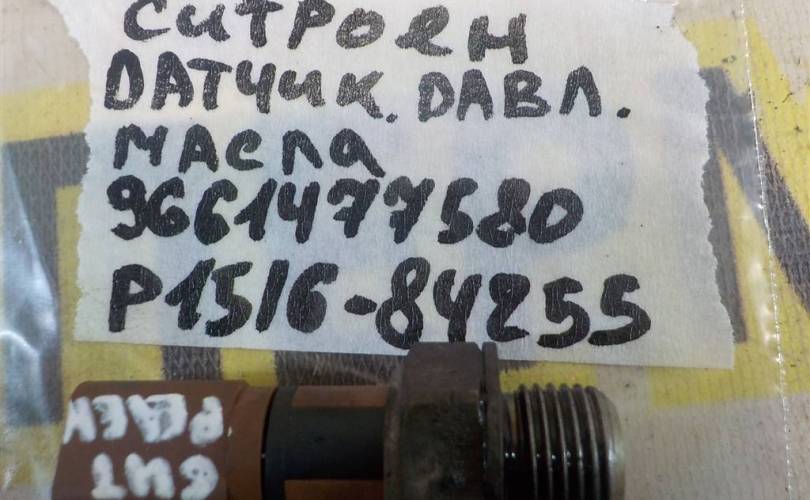 Ситроен
ДАТЧик. ДАВЛ.
масла
9661477580
Р15/6-84255
СИТ
РОЕН